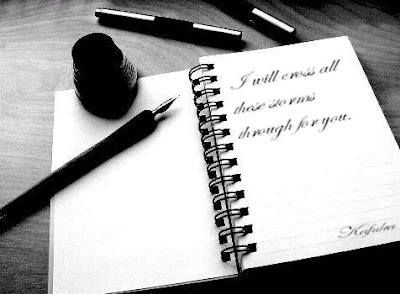 I will cross all
these storms
through for you.